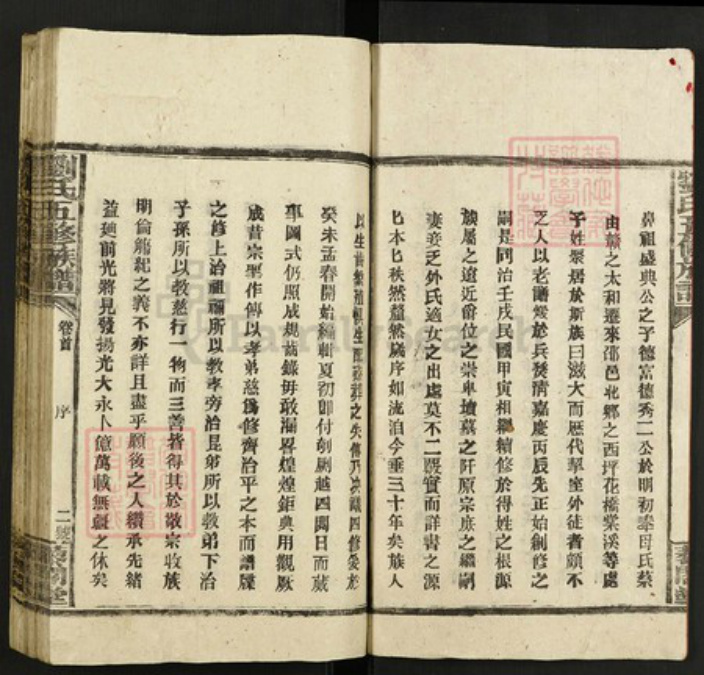 鼻祖盛典公之子德富德秀二公於明初奉母氏蔡
由贛之太和遷來邵邑北鄉之西坪花橋棠溪等處
子姓聚居於斯族曰滋大而歷代挈座外徒者頗不
乏人以老譜燬於兵燹清嘉慶丙辰先正始創修之
嗣是同治壬戌民國甲寅相繼續修於得姓之根源
族屬之遠近爵位之崇卑墳墓之阡原宗庶之繼嗣
妻妾之外氏適女之出處莫不一一覈實而詳書之源
匕本匕秩然釐然燒序如流泊今垂三十年矣族人
以生齒繁殖
之失傳乃决議四修爰於
癸未孟春開始編輯夏初即付剞劂越四閱日而蕆
事圖式仍照成規齒錄毋敢漏畧煌煌鉅典用觀厥
成昔宗聖作傳以孝弟慈爲修齊治平之本而譜牒
之修上治祖禰所以教孝旁治昆弟所以教弟下治
子孫所以教慈行一物而三善皆得其於敬宗收族
明倫飭紀之義不亦詳且盡乎願後之人纘承先緒
益廸前光將見發揚光大永卜億萬載無疆之休矣
劉氏五修族譜
卷首
序
二
FamilySearch